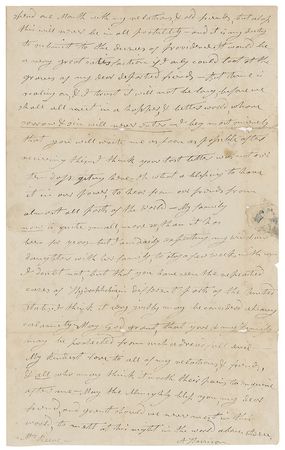 spend one Month with my relations & old friends, but alas
this will never be in all probility — and it is my duty
to submit to the decrees of providence, It would be
a very great satisfaction if I only could look at the
graves of my dear departed friends — But time is
and I trust it will not be long before we
shall all meet in a happier & better world where
sorrow & sin will never enter — I beg most
that you will write me as soon as possible after
receiving this, I think your last letter was not over
ten days getting here, Oh what a blessing to have
it in our power to hear from our friends from
almost all parts of the world — My family
now is quite small, more so than it has
been for years but I am daily expecting my widow
daughter with her family, to stay a few weeks with me
I doubt not, but that you have seen the repeated
cases of Hydrophobia in different parts of the United
States, I think it very justly may be considered a heavy
calamity — May God grant, that you & my family
may be protected from such a dreadful evil
My kindest love to all of my relations & friends,
& all who may think it worth their pains to enquire
after me — May the Almighty bless you my dear
friend, and grant should we never meet in this
world, to meet at his right in the world above, Adieu,
A Harrison